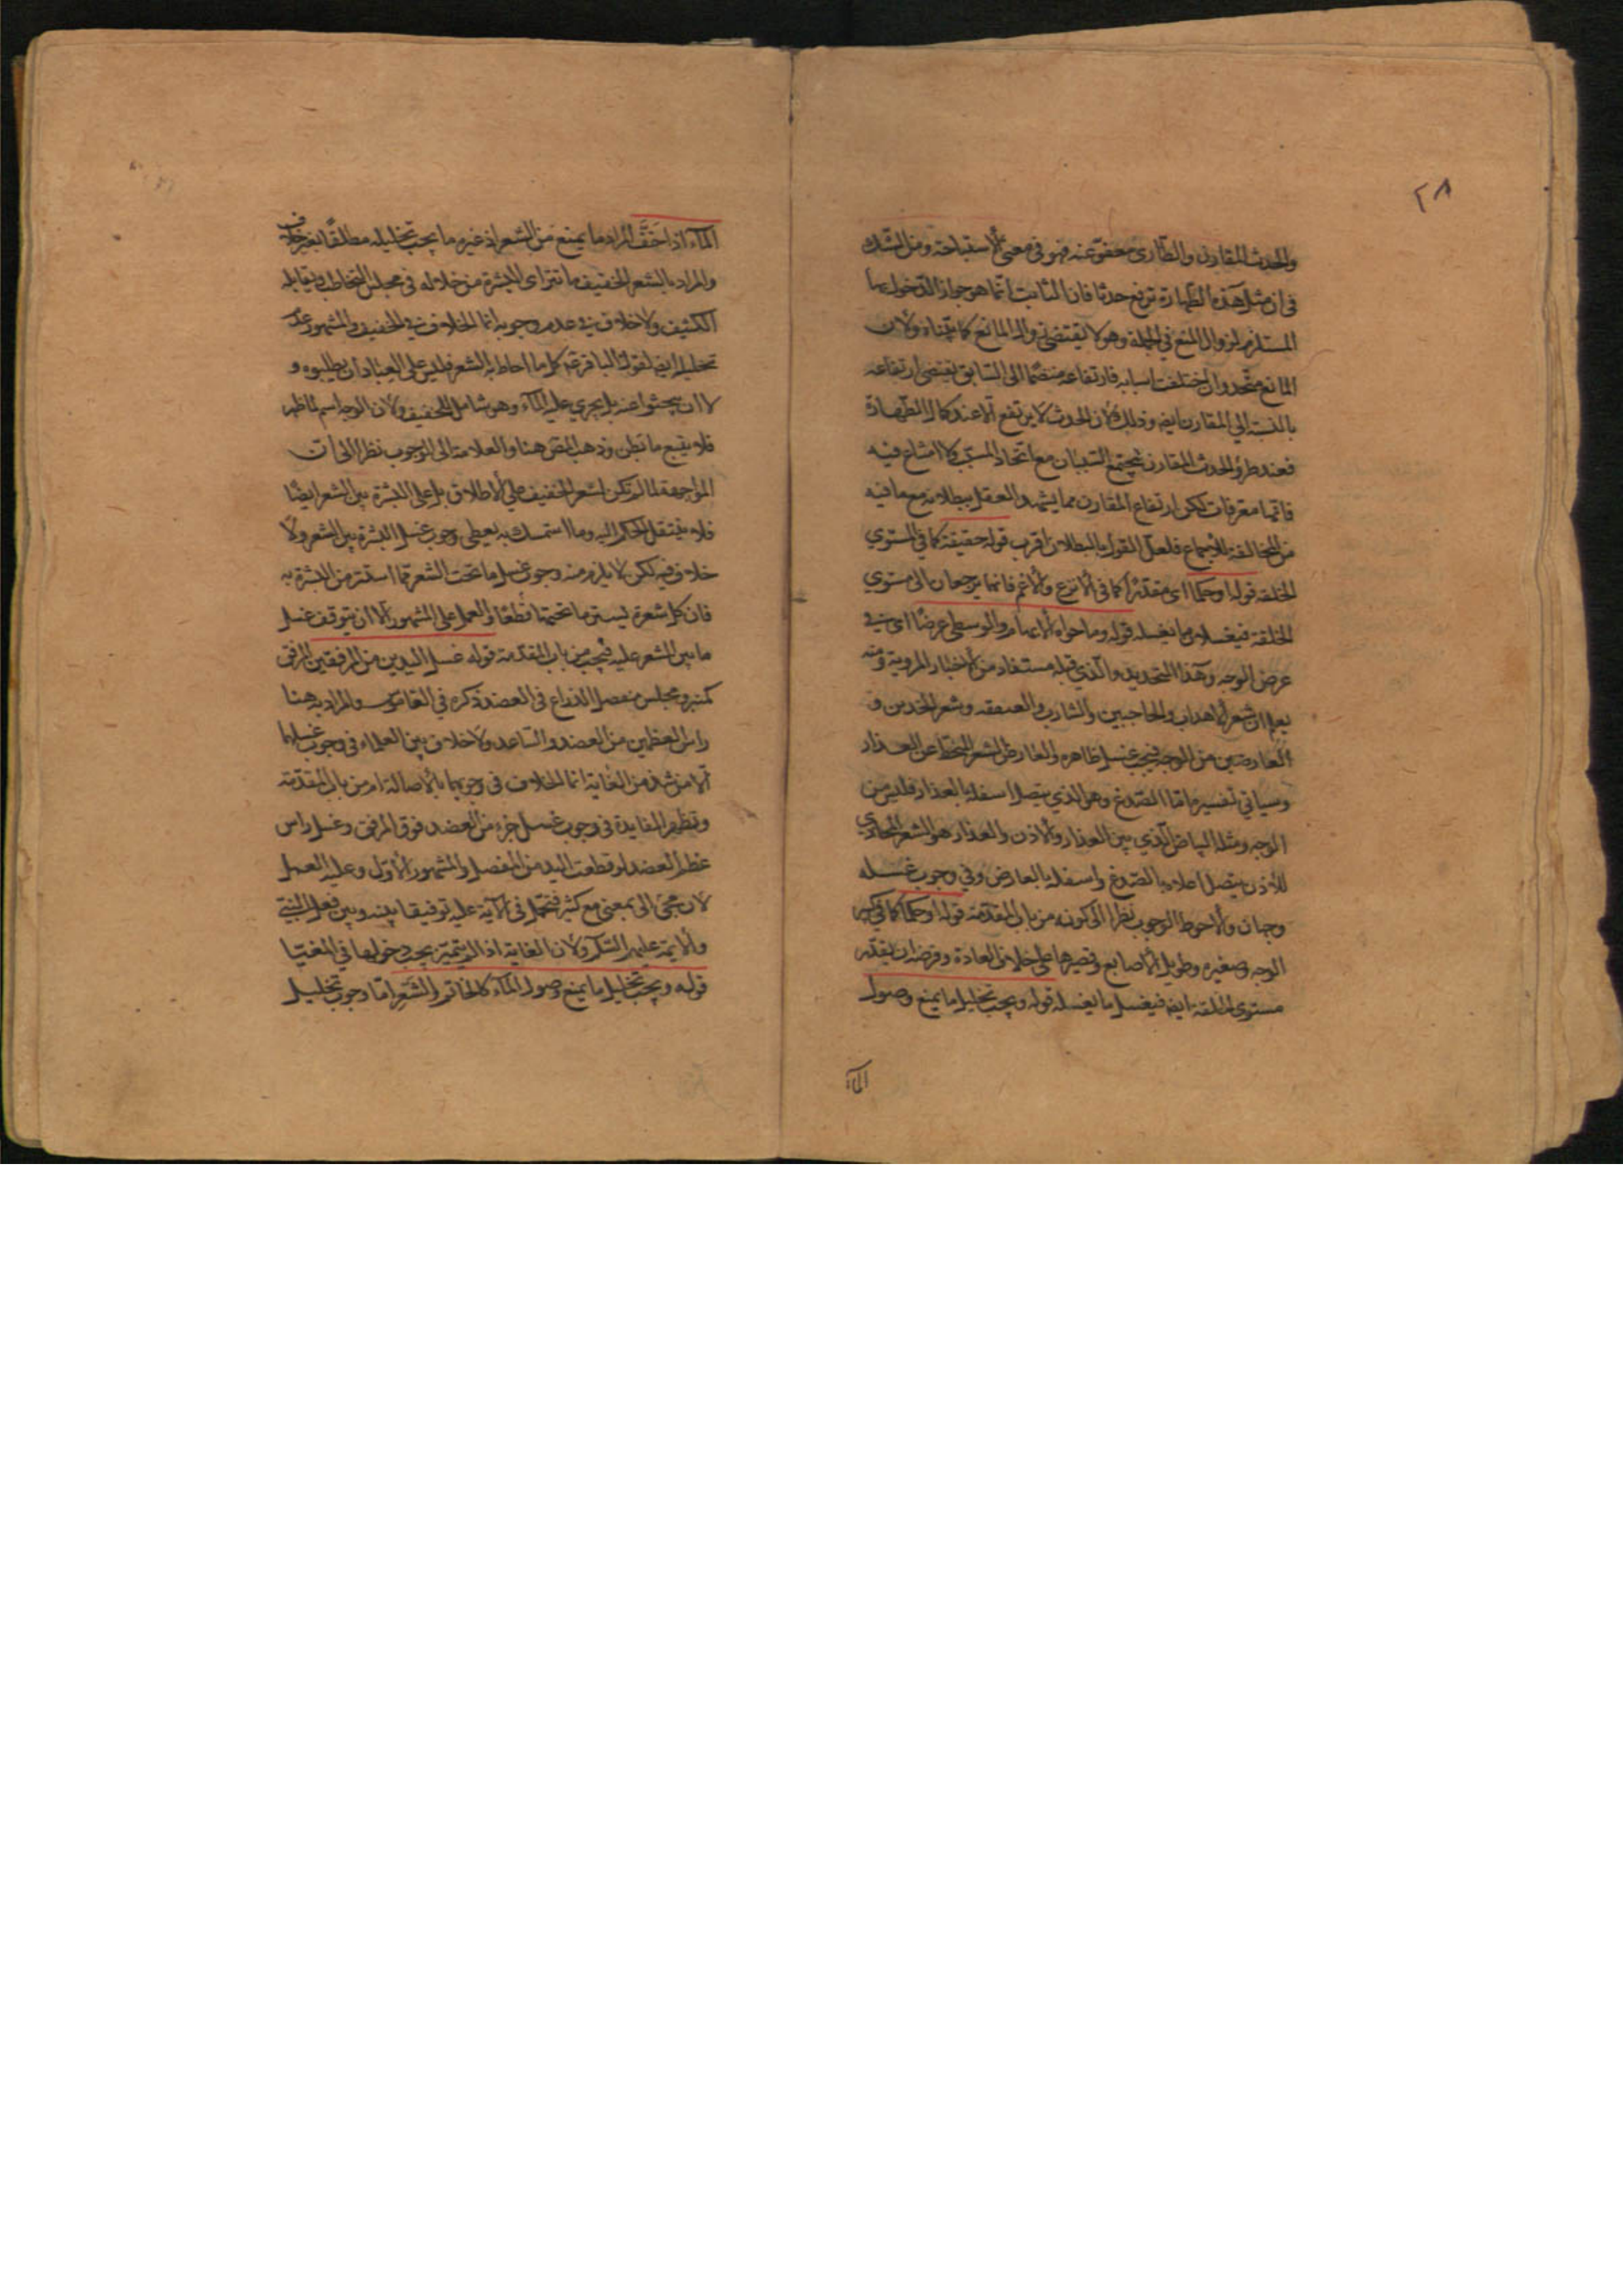 ٢٨
والحدث المقارن والطاري معفو عنه فهو في معنى الاستباحة ومن الشك
في ان مثل هذه الطهارة ترفع حدثا فان الثابت انما هو جواز الدخول بها
المستلزم لزوال المنع في الجملة وهو لا يقتضي زوال المانع كما بيناه ولان
المانع متحد وان اختلفت اسبابه فارتفاعه منضما الى السابق يقتضي ارتفاعه
بالنسبة الي المقارن ايضا وذلك لان الحدث لا يرتفع الا عند كمال الطهارة
فعند طرؤ الحدث المقارن يجتمع السببان مع اتحاد المسبب كلا امتناع فيه
فانها معرفات لكن ارتفاع المقارن مما يشهد العقل ببطلانه مع ما فيه
من المخالفة للاجماع فلعل القول بالبطلان اقرب قوله حقيقة كما في المستوي
الخلقة قوله او حكما اي مقدرا كما في الانزع والاغم فانهما يرجعان الى مستوي
الخلقة فيغسلان ما يغسله قوله وما حواه الابهام والوسطى عرضا اي في
عرض الوجه وهذا التحديد والذي قبله مستفاد من الاخبار المروية ومنه
يعلم ان شعر الاهداب والحاجبين والشارب والعنفقه وشعر الخدين و
العارضين من الوجه فيجب غسل ظاهره والعارض الشعر المنحط عن العذار
وسياتي تفسيره اما الصدغ وهو الذي يتصل اسفله بالعذار فليس من
الوجه ومثله البياض الذي بين العذار والاذن والعذار هو الشعر المحاذي
للاذن يتصل اعلاه بالصدغ واسفله بالعارض وفي وجوب غسله
وجهان والاحوط الوجوب نظرا الى كونه من باب المقدمة قوله او حكما كما في كبير
الوجه وصغيره وطويل الاصابع وقصيرها على خلاف العادة وفرضه ان يقدر
مستوى الخلقة ايضا فيغسل ما يغسله قوله ويجب تخليل ما يمنع وصول
الماء
الماء اذا خف المراد ما يمنع من الشعر اذ غيره ما يجب تخليله مطلقا بغير خلاف
والمراد بالشعر الخفيف ما تتراى البشرة من خلاله في مجلس التخاطب ويقابله
الكثيف ولا خلاف في عدم وجوبه انما الخلاف في الخفيف والمشهور عدم
تخليله ايضا لقول الباقر ع كل ما احاط به الشعر فليس على العباد ان يطلبوه و
لا ان يبحثوا عنه بل يجري عليه الماء وهو شامل للخفيف ولان الوجه اسم لما ظهر
فلا يتبع ما بطن وذهب المص هنا والعلامة الى الوجوب نظرا الى ان
المواجهة لما لم تكن لشعر الخفيف على الاطلاق بل على البشرة بين الشعر ايضا
فلا ينتقل الحكم اليه وما استمسك به يعطي وجوب غسل البشرة بين الشعر ولا
خلاف فيه لكن لا يلزم منه وجوب غسل ما تحت الشعر مما استتر من البشرة به
فان كل شعرة يستر ما تحتها قطعا والعمل على المشهور الا ان يتوقف غسل
ما بين الشعر عليه فيجب من باب المقدمة قوله غسل اليدين من المرفقين المرفق
كمنبر ومجلس مفصل الذراع في العضد ذكره في القاموس والمراد به هنا
راس العظمين من العضد والساعد ولا خلاف بين العلماء في وجوب غسلهما
الا من شذ من العامة انما الخلاف في وجوبها بالاصالة ام من باب المقدمة
وتظهر الفايدة في وجوب غسل جزء من العضد فوق المرفق وغسل راس
عظم العضد لو قطعت اليد من المفصل والمشهور الاول وعليه العمل
لان مجئ الى بمعنى مع كثير فتحمل في الآية عليه توفيقا بينه وبين فعل النبي
والايمة عليهم السلم ولان الغاية اذا لم يتميز يجب دخولها في المغيا
قوله ويجب تخليل ما يمنع وصول الماء كالخاتم والشعر اما وجوب تخليل